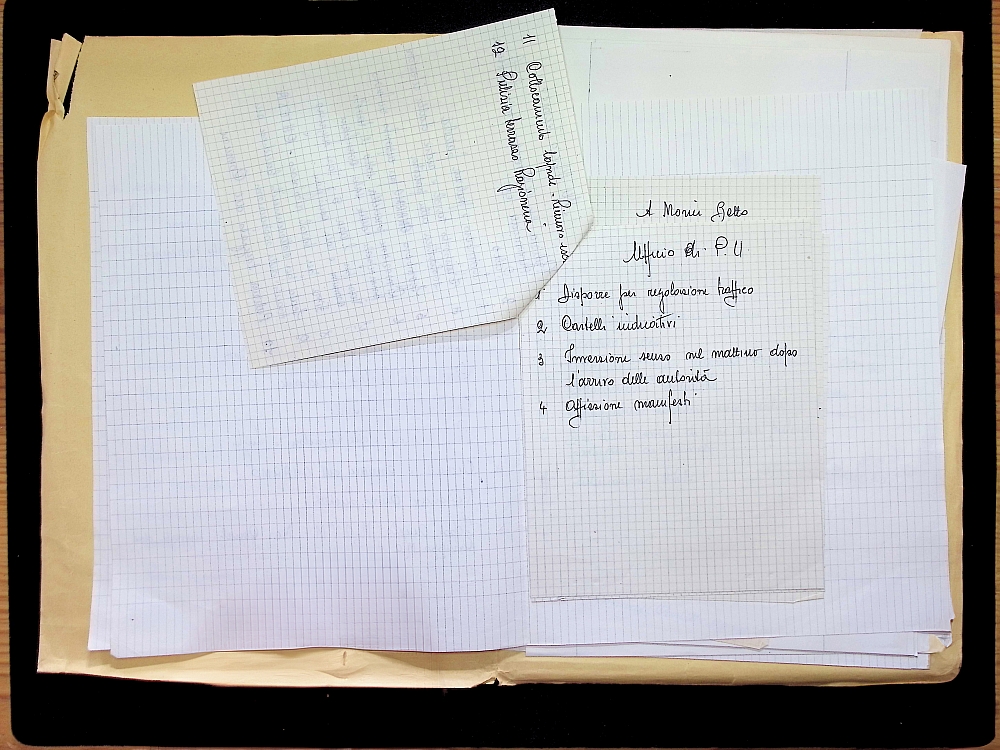 11 Collocamento lapide - Rinvio
12 Pulizia terrazzo Ragioneria
A Monier Getto
Ufficio di P.U
1 Disporre per regolazione traffico
2 Cartelli indicativi
3 Inversione senso nel mattino dopo
l'arrivo delle autorità
4 Affissione manifesti